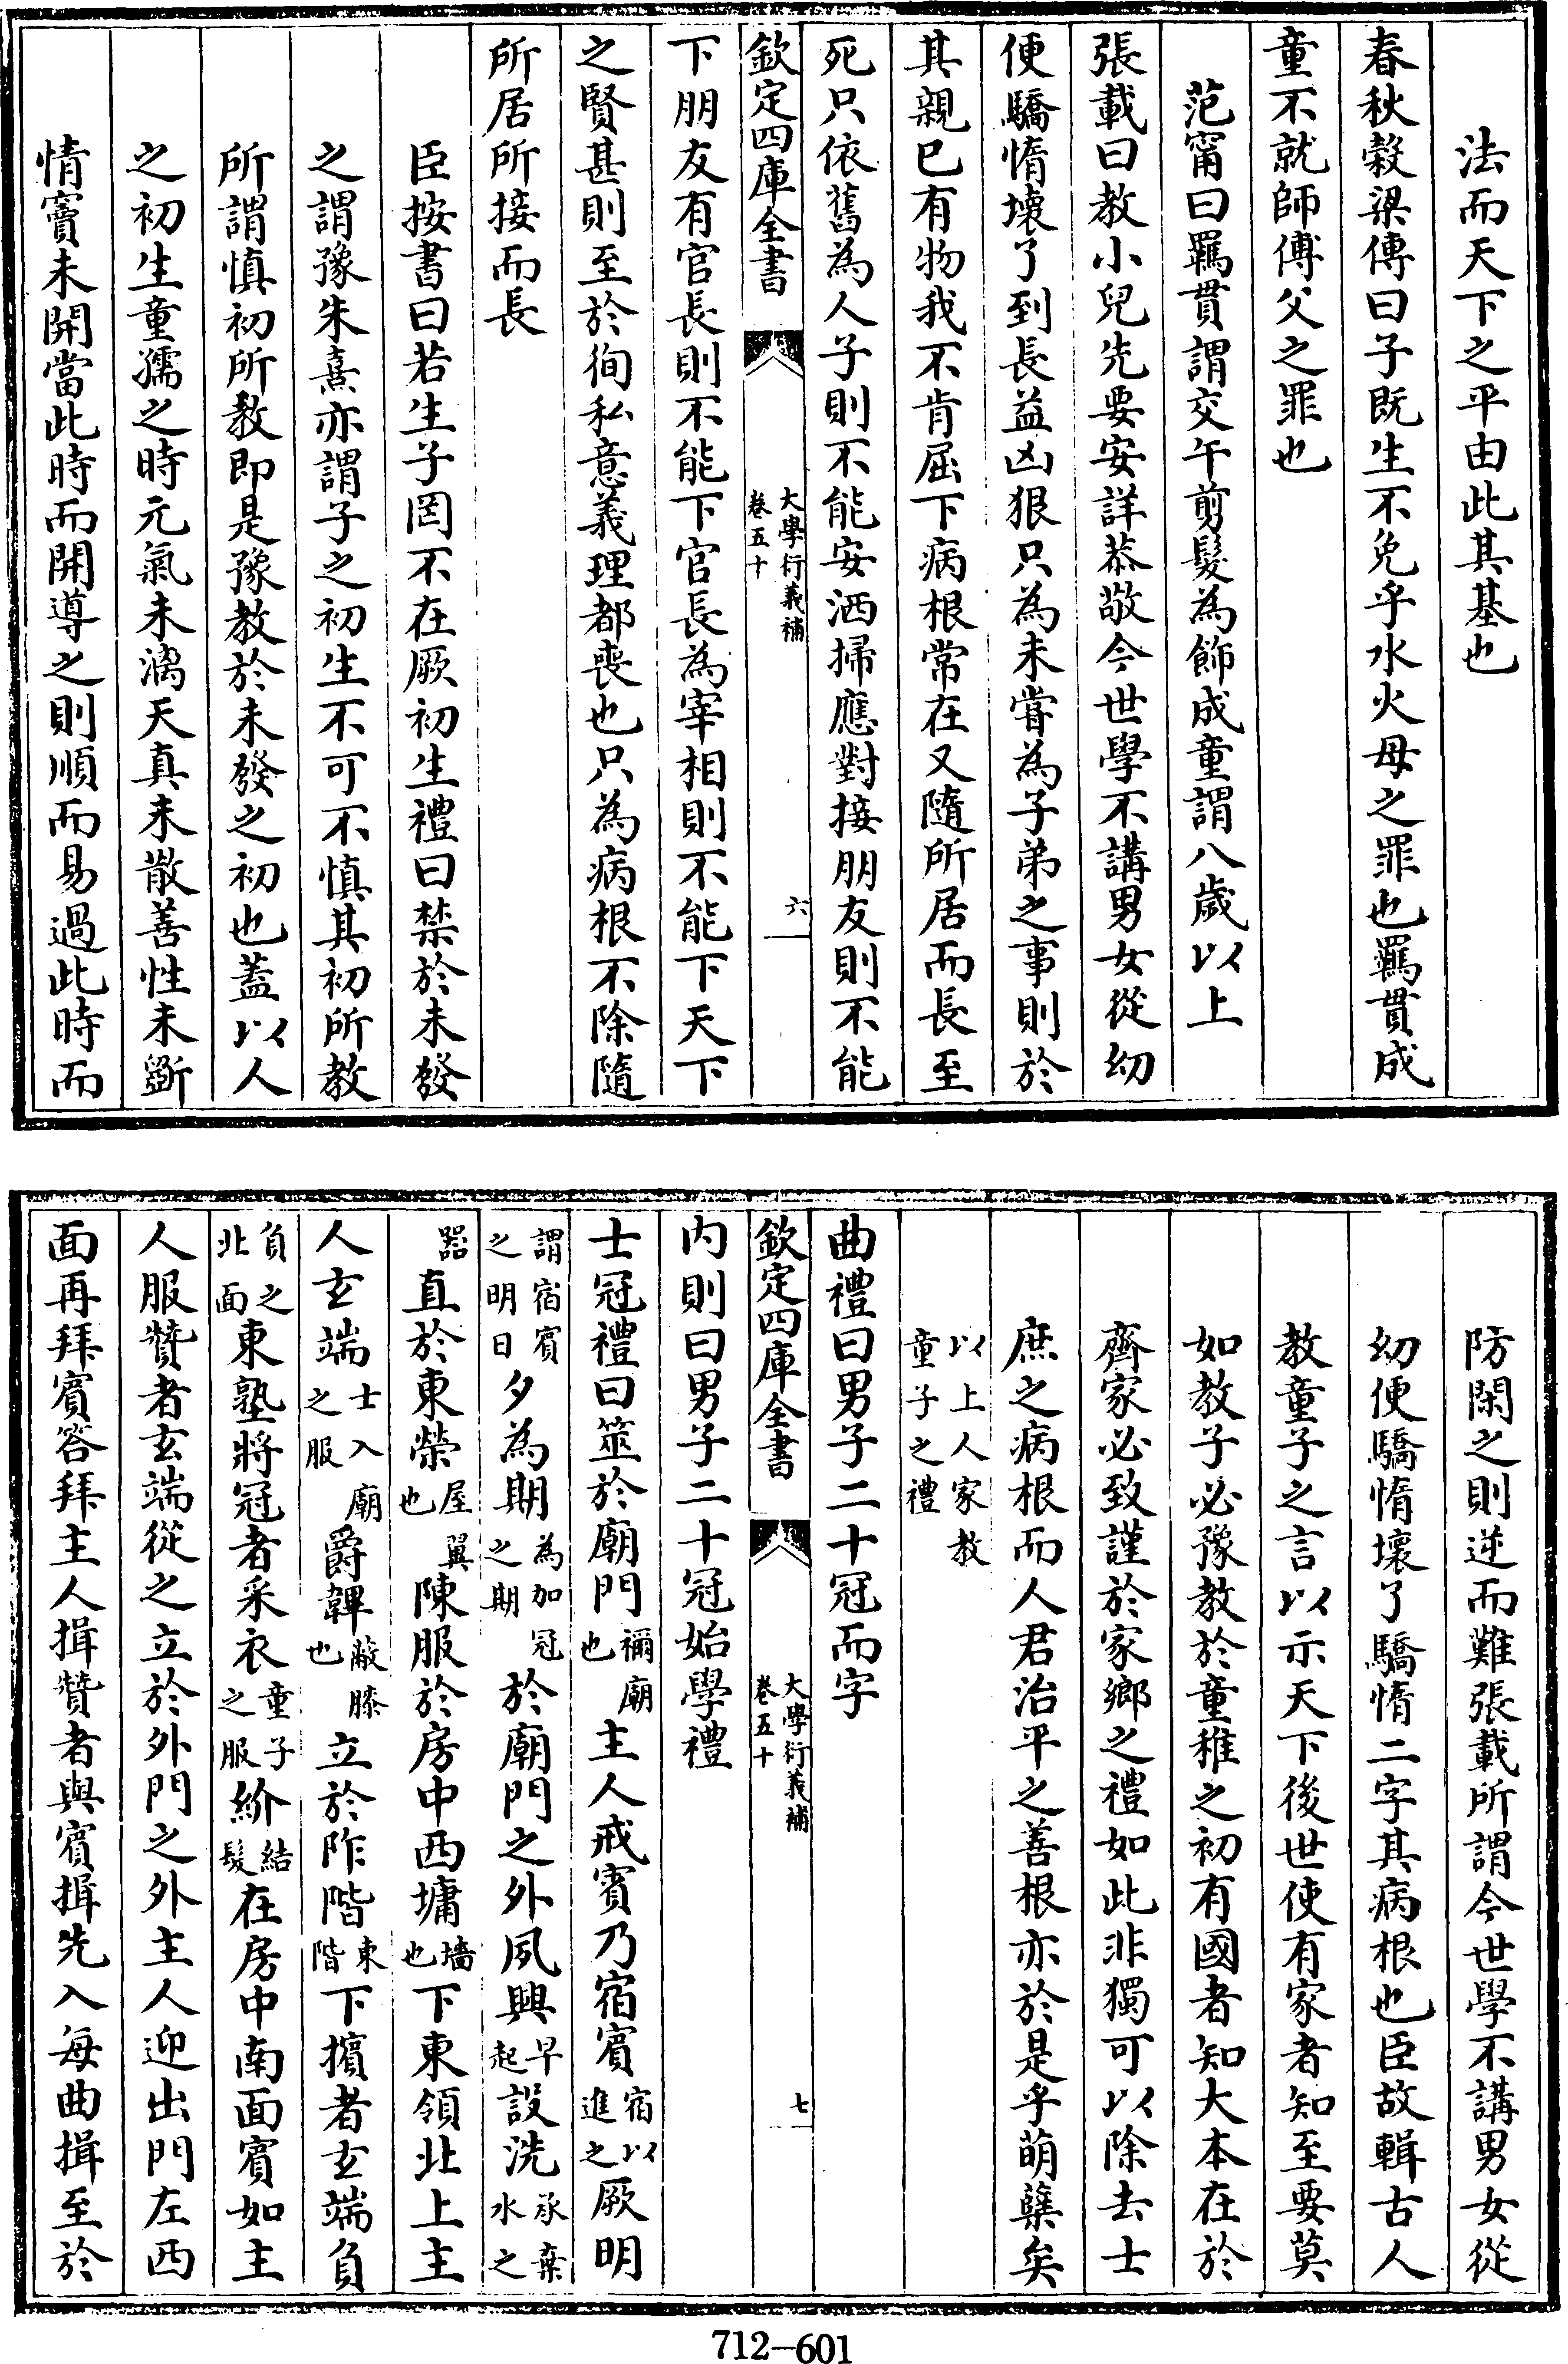 法而天下之平由此其基也
春秋穀梁傳曰子既生不免乎水火母之罪也羈貫成
童不就師傅父之罪也
范甯曰羈貫謂交午剪髮為飾成童謂八歲以上
張載曰教小兒先要安詳恭敬今世學不講男女從幼
便驕惰壞了到長益凶狠只為未嘗為子弟之事則於
其親已有物我不肯屈下病根常在又隨所居而長至
死只依舊為人子則不能安洒掃應對接朋友則不能
欽定四庫全書
大學衍義補
卷五十
六
下朋友有官長則不能下官長為宰相則不能下天下
之賢甚則至於徇私意義理都喪也只為病根不除隨
所居所接而長
臣按書曰若生子罔不在厥初生禮曰禁於未發
之謂豫朱熹亦謂子之初生不可不慎其初所教
所謂慎初所教即是豫教於未發之初也蓋以人
之初生童孺之時元氣未漓天真未散善性未斲
情竇未開當此時而開導之則順而易過此時而
防閑之則逆而難張載所謂今世學不講男女從
幼便驕惰壞了驕惰二字其病根也臣故輯古人
教童子之言以示天下後世使有家者知至要莫
如教子必豫教於童稚之初有國者知大本在於
齊家必致謹於家鄉之禮如此非獨可以除去士
庶之病根而人君治平之善根亦於是乎萌蘖矣
以上人家教
童子之禮
曲禮曰男子二十冠而字
欽定四庫全書
大學衍義補
卷五十
七
內則曰男子二十冠始學禮
士冠禮曰筮於廟門禰廟也主人戒賓乃宿賓宿以進之厥明
謂宿賓之明日夕為期為加冠之期於廟門之外夙興早起設洗承棄水之
器直於東榮屋翼也陳服於房中西墉墻也下東領北上主
人玄端士入廟之服爵韠蔽膝也立於阼階東階下擯者玄端負
負之北面東塾將冠者采衣童子之服紒結髮在房中南面賓如主
人服贊者玄端從之立於外門之外主人迎出門左西
面再拜賓答拜主人揖贊者與賓揖先入每曲揖至於
712-601